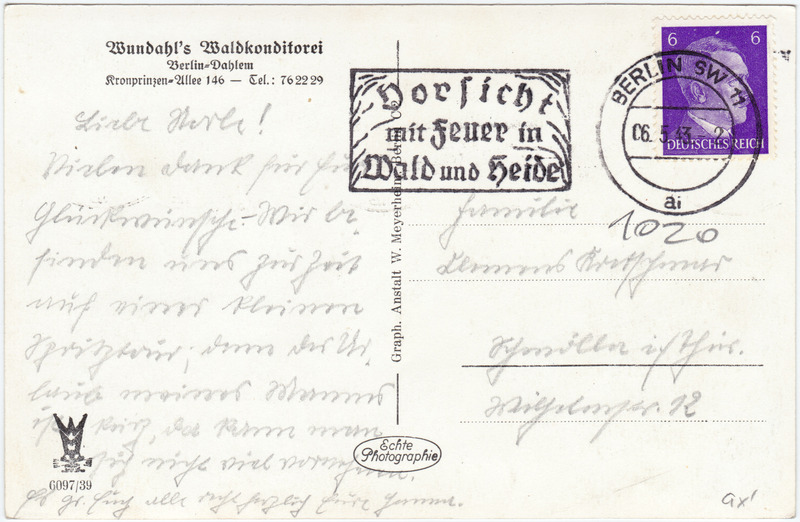 Wundahl's Waldkonditorei
Berlin-Dahlem
Kronprinzen-Allee 146 — Tel.: 76 22 29
Liebe
Vielen Dank für
Glückwünsche. Wir be
finden uns zur Zeit
auf einer kleinen
Spritztour, denn der Ur
laub meines Mannes
ist kurz, da kann man
sich nicht viel vornehmen.
Es gr. Euch alle recht herzlich Eure
6097/39
Graph. Anstalt W. Meyerheim, Berlin
Echte
Photographie
Vorsicht
mit Feuer in
Wald und Heide
BERLIN SW 11
06.5.43. 2
ai
6 6
DEUTSCHES REICH
1020
Familie
Clemens Kretschmar
Schmölln i/Thür.
Wilhelmstr. 12